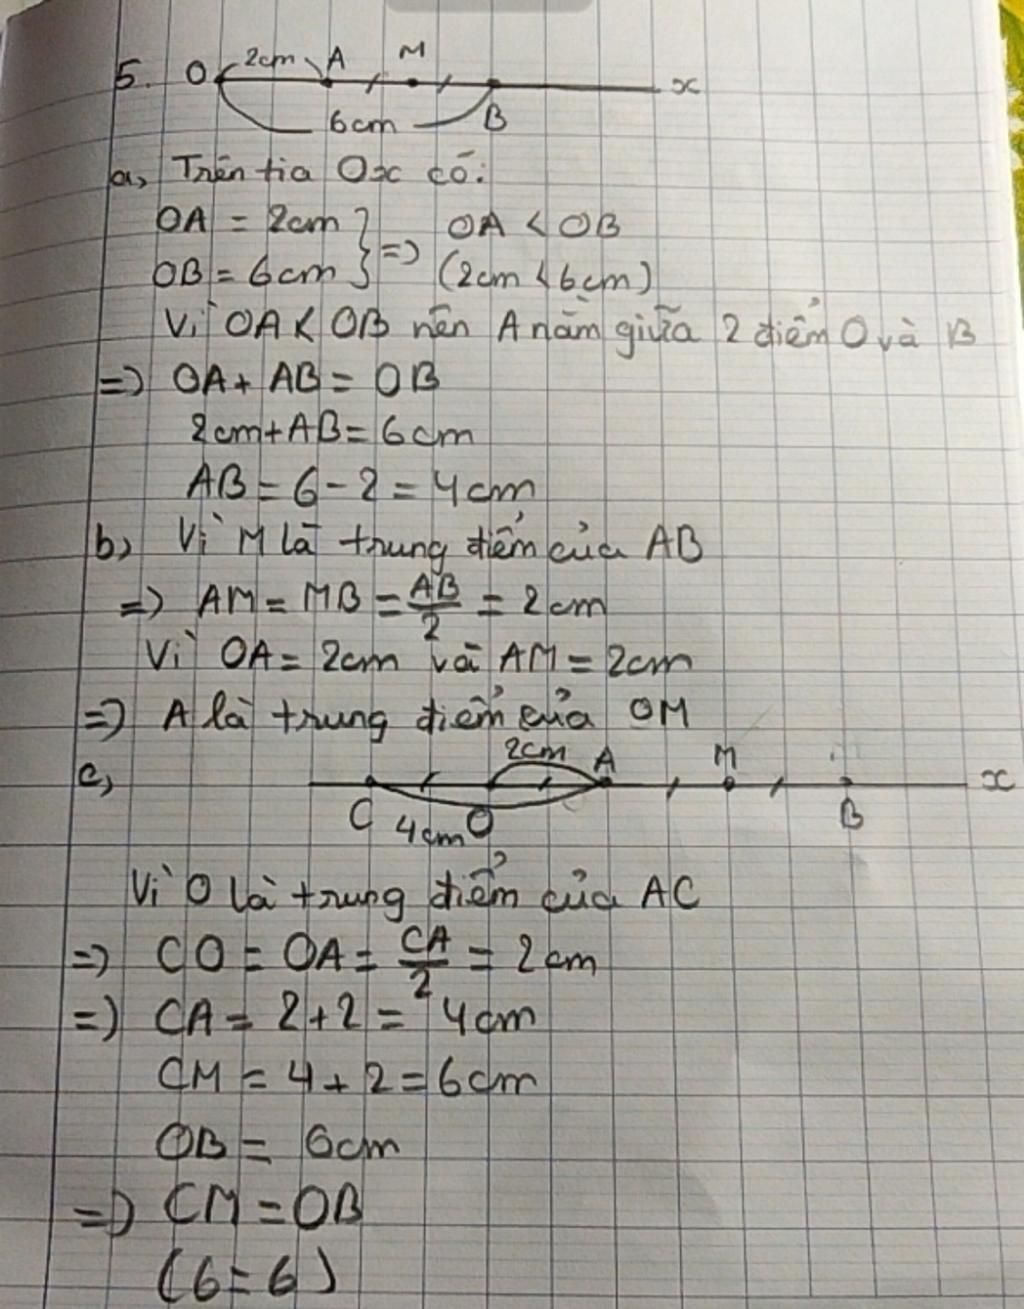 5. O 2cm A M x
6cm B
a, Trên tia Ox có:
OA = 2cm } OA < OB
OB = 6cm } => (2cm < 6cm)
Vì OA < OB nên A nằm giữa 2 điểm O và B
=> OA + AB = OB
2cm + AB = 6cm
AB = 6 - 2 = 4cm
b, Vì M là trung điểm của AB
=> AM = MB = AB/2 = 2cm
Vì OA = 2cm và AM = 2cm
=> A là trung điểm của OM
c, 2cm A M x
C 4cm O B
Vì O là trung điểm của AC
=> CO = OA = CA/2 = 2cm
=> CA = 2 + 2 = 4cm
CM = 4 + 2 = 6cm
OB = 6cm
=> CM = OB
(6 = 6)